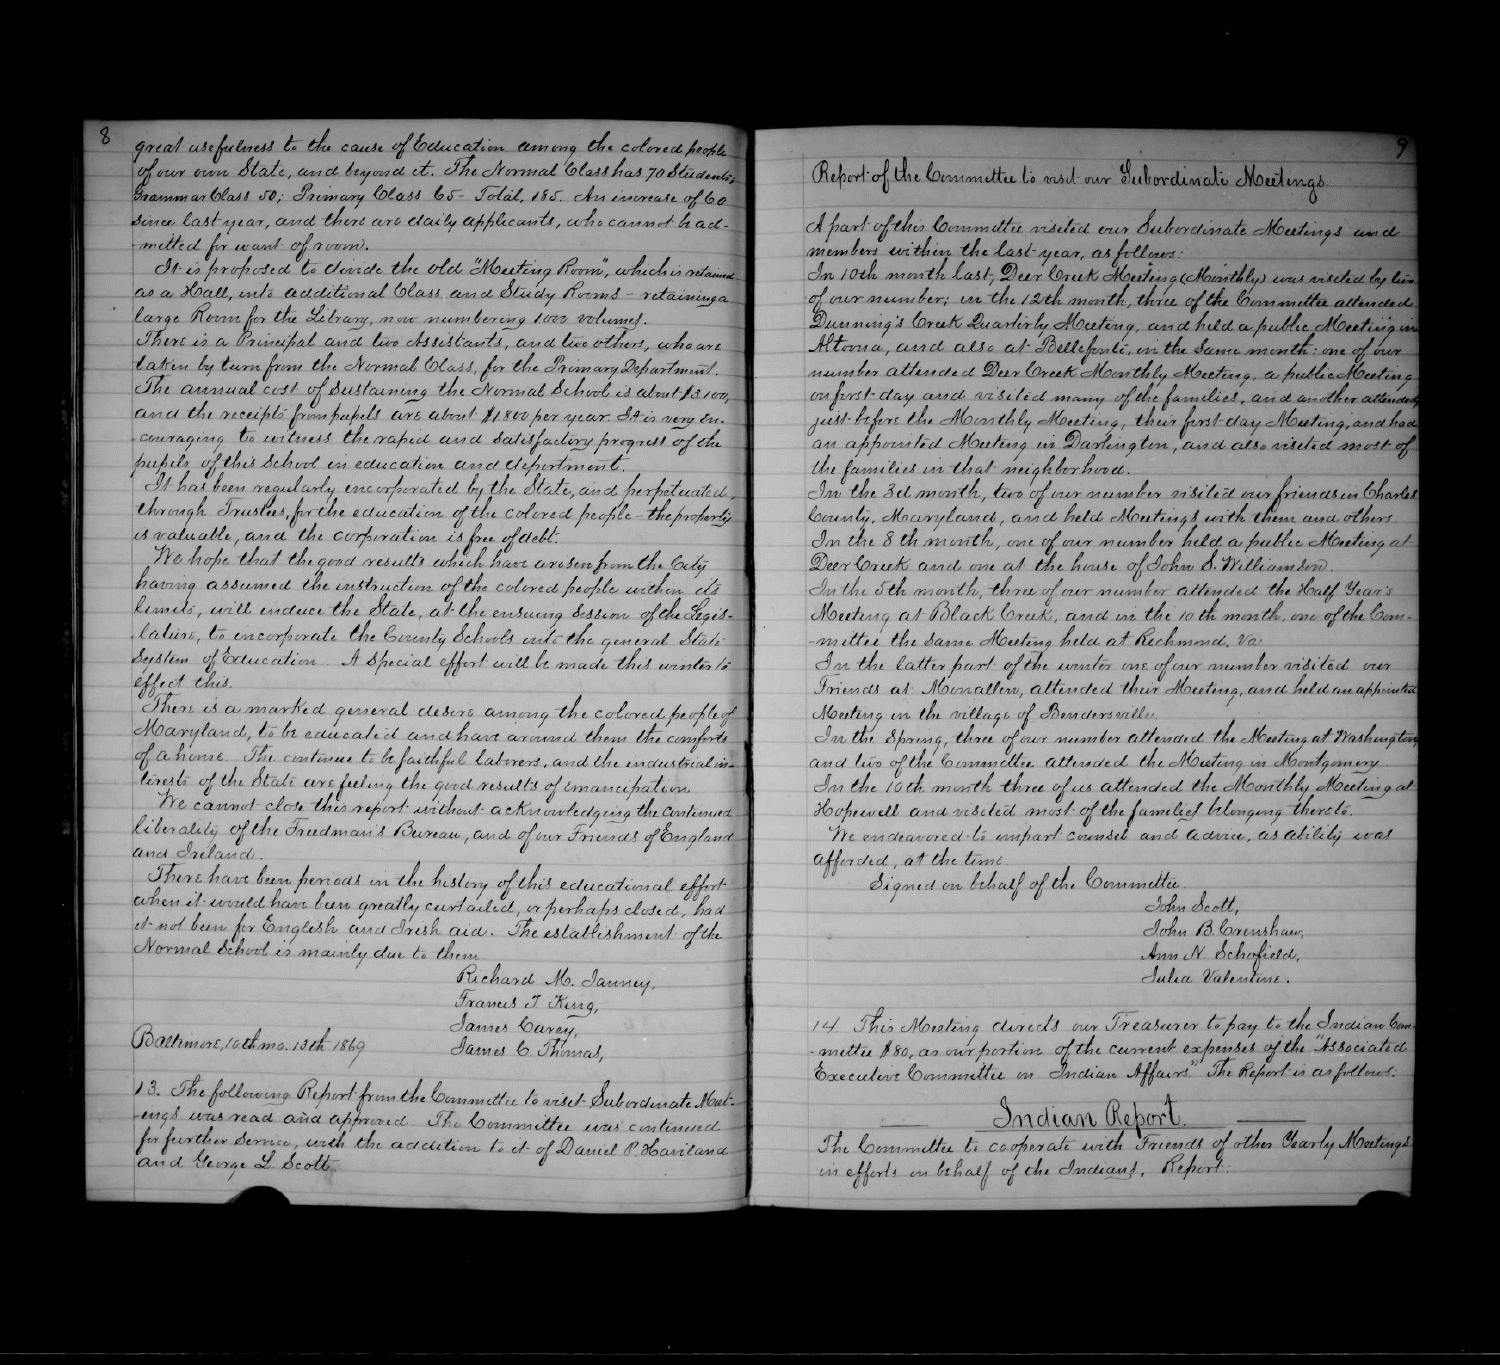 8
great usefulness to the cause of Education among the colored people
of our own State, and beyond it. The Normal Class has 70 Students;
Grammar Class 50; Primary Class 65 - Total, 185. An increase of 60
since last year, and there are daily applicants, who cannot be ad-
-mitted for want of room.
It is proposed to divide the old "Meeting Room", which is retained
as a Hall, into additional Class and Study Rooms - retaining a
large Room for the Library, now numbering 1000 volumes.
There is a Principal and two Assistants, and two others, who are
taken by turn from the Normal Class, for the Primary Department.
The annual cost of sustaining the Normal School is about $3100,
and the receipts from pupils are about $1800 per year. It is very en-
couraging to witness the rapid and satisfactory progress of the
pupils of this School in education and deportment.
It has been regularly incorporated by the State, and perpetuated,
through Trustees, for the education of the colored people - the property
is valuable, and the corporation is free of debt.
We hope that the good results which have arisen from the City
having assumed the instruction of the colored people within its
limits, will induce the State, at the ensuing session of the Legis-
lature, to incorporate the County Schools into the general State
System of Education. A special effort will be made this winter to
effect this.
There is a marked general desire among the colored people of
Maryland, to be educated and have around them the comforts
of a home. The continue to be faithful laborers, and the industrial in-
terests of the State are feeling the good results of emancipation
We cannot close this report without acknowledging the continued
liberality of the Freedman's Bureau, and of our Friends of England
and Ireland.
There have been periods in the history of this educational effort
when it would have been greatly curtailed, or perhaps closed, had
it not been for English and Irish aid. The establishment of the
Normal School is mainly due to them
Richard M. Janney,
Francis T King,
James Carey,
Baltimore, 10th mo. 13th 1869
James C. Thomas,
13. The following Report from the Committee to visit Subordinate Meet-
-ings was read and approved The Committee was continued
for further service, with the addition to it of Daniel P. Haviland
and George L Scott.
9
Report of the Committee to visit our Subordinate Meetings.
A part of this Committee visited our Subordinate Meetings and
members within the last year, as follows:
In 10th month last, Deer Creek Meeting (Monthly) was visited by two
of our number; in the 12th month, three of the Committee attended
Dunning's Creek Quarterly Meeting, and held a public Meeting in
Altoona, and also at Bellefonte, in the same month: one of our
number attended Deer Creek Monthly Meeting, a public Meeting
on first-day and visited many of the families, and another attended,
just before the Monthly Meeting, their first day Meeting, and had
an appointed Meeting in Darlington, and also visited most of
the families in that neighborhood.
In the 3d month, two of our number visited our friends in Charles
County, Maryland, and held Meetings with them and others.
In the 8th month, one of our number held a public Meeting at
Deer Creek and one at the house of John S. Williamson.
In the 5th month, three of our number attended the Half Year's
Meeting at Black Creek, and in the 10th month, one of the Com-
-mittee the same Meeting held at Richmond, Va
In the latter part of the winter one of our number visited our
Friends at Monallen, attended their Meeting, and held an appointed
Meeting in the village of Bendersville.
In the Spring, three of our number attended the Meeting at Washington,
and two of the Committee attended the Meeting in Montgomery
In the 10th month three of us attended the Monthly Meeting at
Hopewell and visited most of the families belonging thereto.
We endeavored to impart counsel and advice, as ability was
afforded, at the time
Signed on behalf of the Committee.
John Scott,
John B. Crenshaw,
Ann N Schofield,
Julia Valentine.
14. This Meeting directs our Treasurer to pay to the Indian Com-
-mittee $80, as our portion of the current expenses of the "Associated
Executive Committee on Indian Affairs." The Report is as follows.
Indian Report.
The Committee to cooperate with Friends of other Yearly Meetings
in efforts on behalf of the Indians, Report: